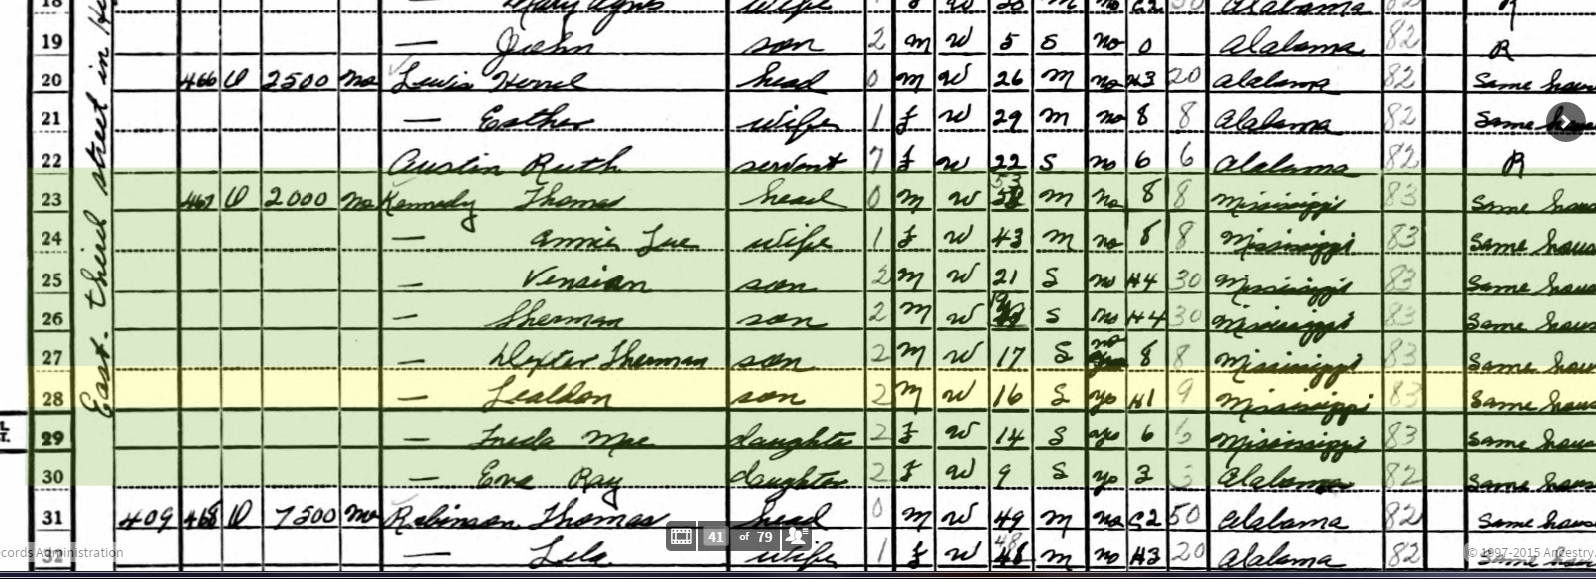 East. third street in
18 — Mary Agnes wife 1 f w M no C2 30 Alabama 82 R
19 — John son 2 m w 5 S no 0 Alabama 82 R
20 466 O 2500 no Lewis head 0 m w 26 m no H3 20 Alabama 82 Same hous
21 — Esther wife 1 f w 29 m no 8 8 Alabama 82 Same hous
22 Austin Ruth servant 7 f w 22 S no 6 6 Alabama 82 R
23 467 O 2000 no Kennedy Thomas head 0 m w 53 m no 8 8 Mississippi 83 Same hous
24 — Annie Lue wife 1 f w 43 m no 8 8 Mississippi 83 Same hous
25 — son 2 m w 21 S no H4 30 Mississippi 83 Same hous
26 — Sherman son 2 m w 19 S no H4 30 Mississippi 83 Same hous
27 — Dexter Therman son 2 m w 17 S no 8 8 Mississippi 83 Same hous
28 — Lealdon son 2 m w 16 S yes H1 9 Mississippi 83 Same hous
29 — Freda Mae daughter 2 f w 14 S yes 6 6 Mississippi 83 Same hous
30 — Eva Ray daughter 2 f w 9 S yes 3 3 Alabama 82 Same hous
31 409 468 O 7500 no Robinson Thomas head 0 m w 49 m no C2 50 Alabama 82 Same hous
32 — Lela wife 1 f w 48 m no H3 20 Alabama 82 Same hous
41 of 79
cords Administration
© 1997-2015 Ancestry